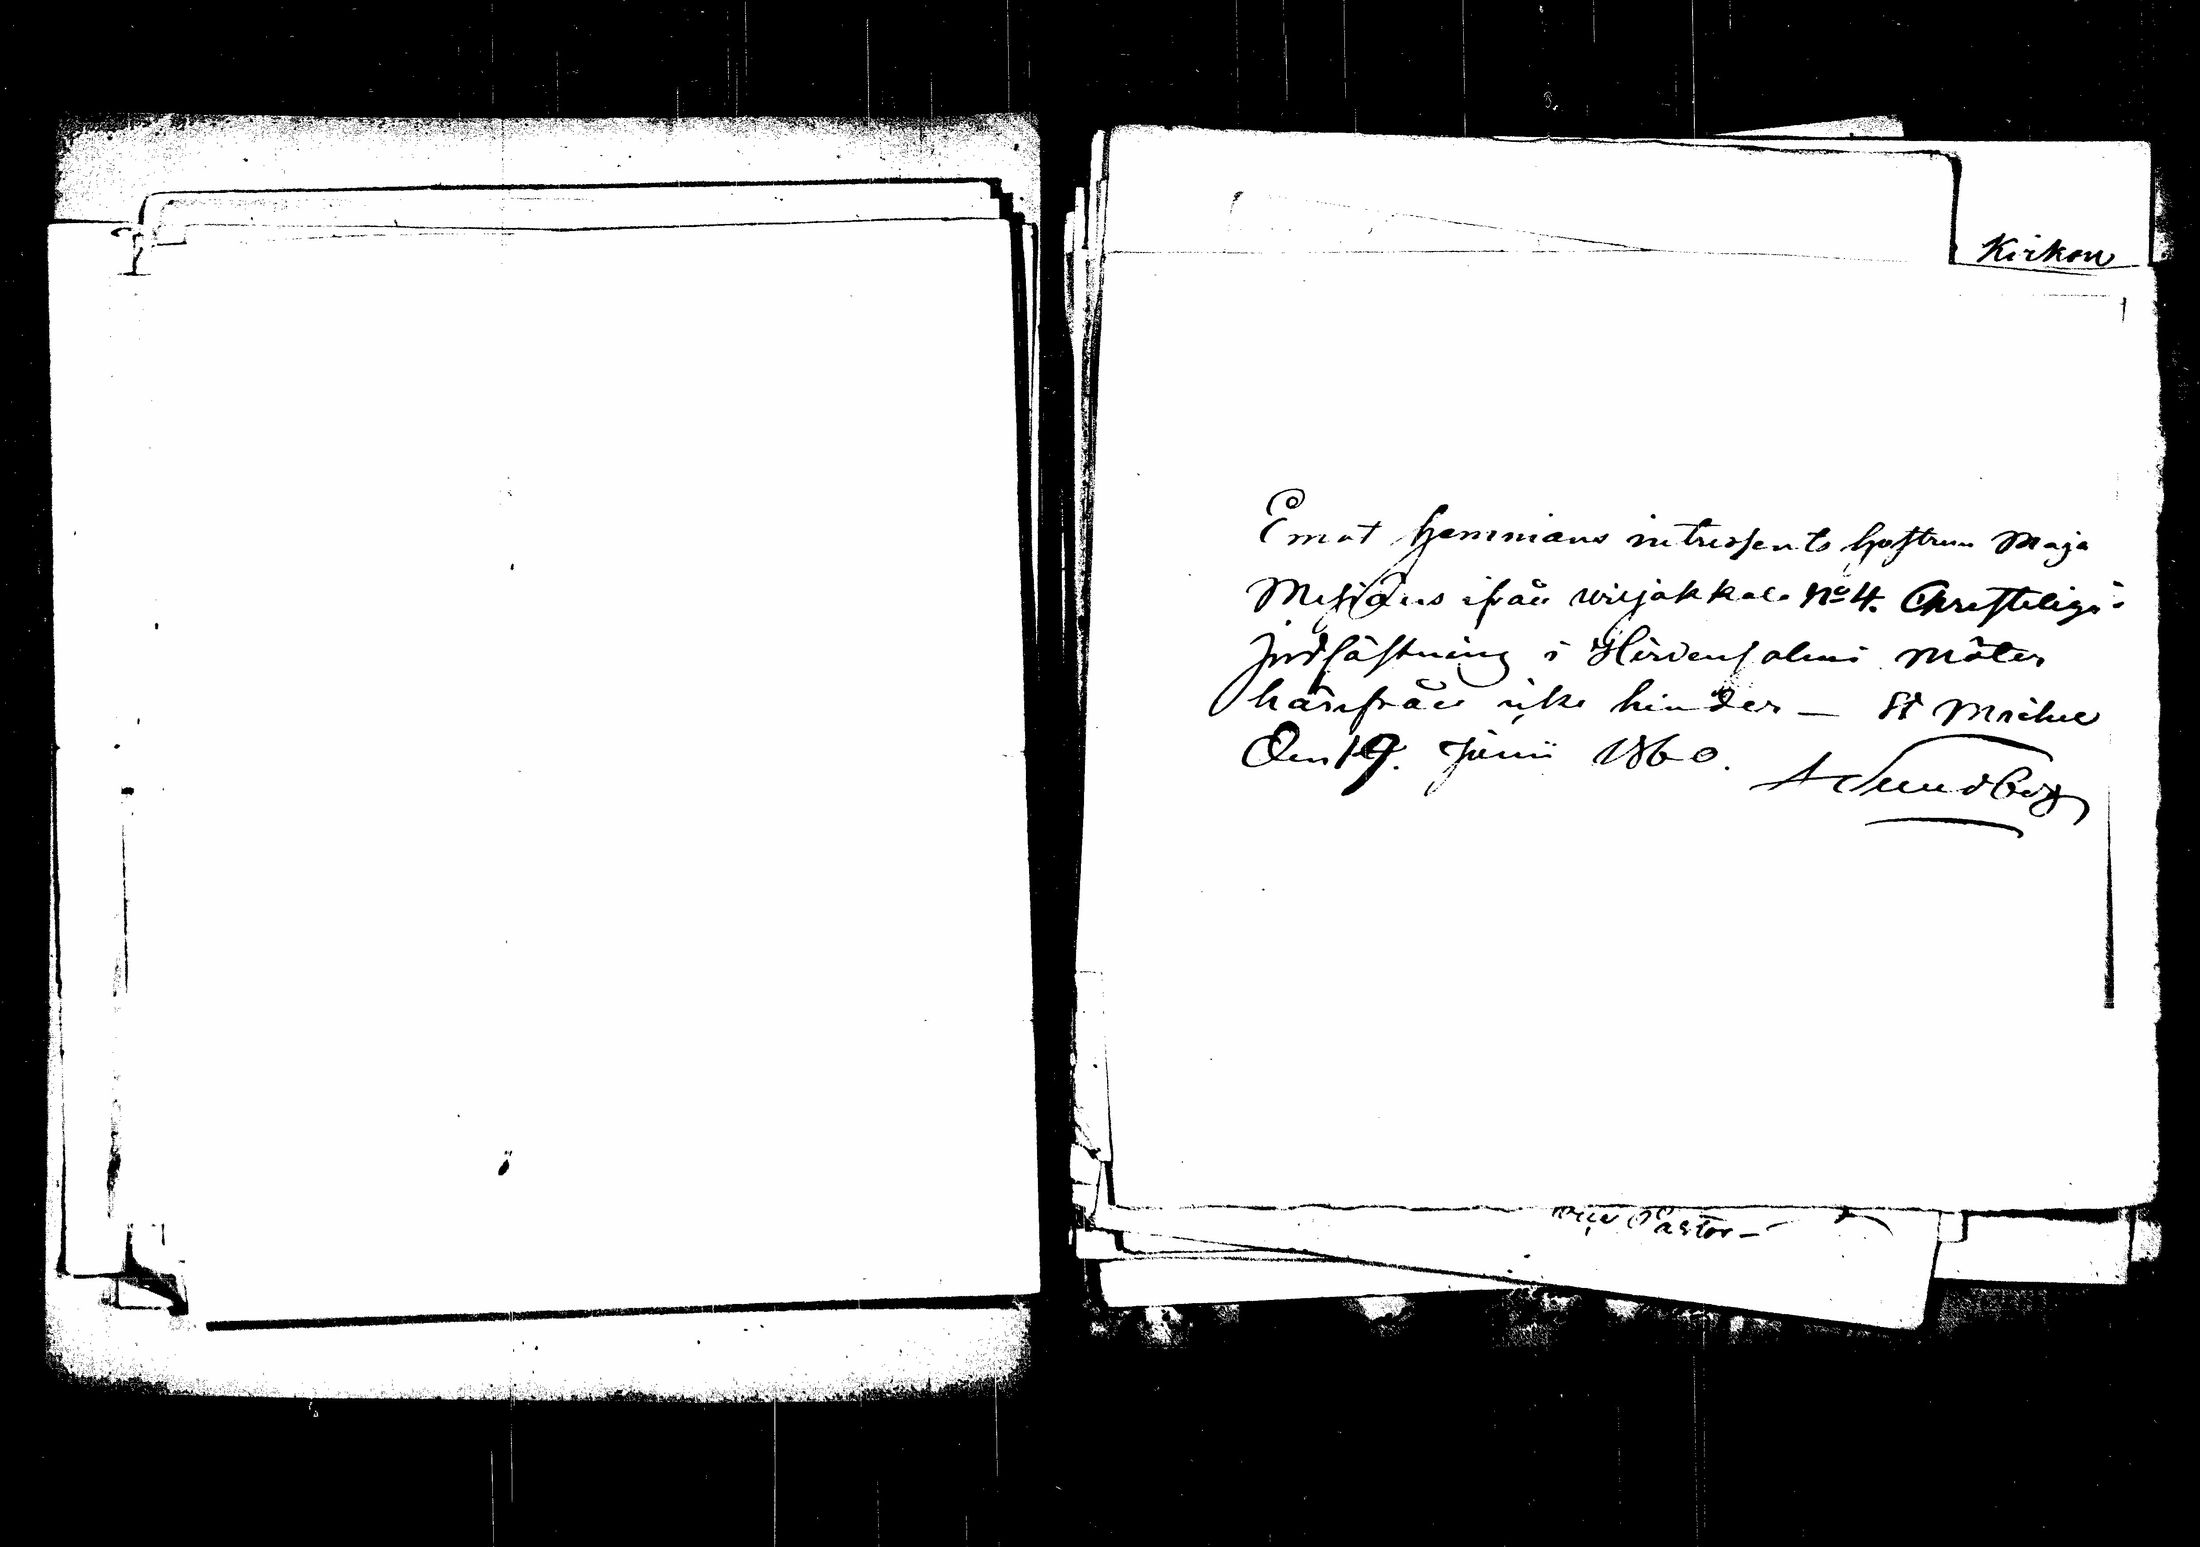 Kirkon
Emot Hemmans intressents hustrun Maja
ifrån wiljakkala No 4. Christeliga
jordfästning i Hirvensalmi möter
härifrån icke hinder — St Michel
Den 19. Junii 1860.
A Sundberg
Pastor